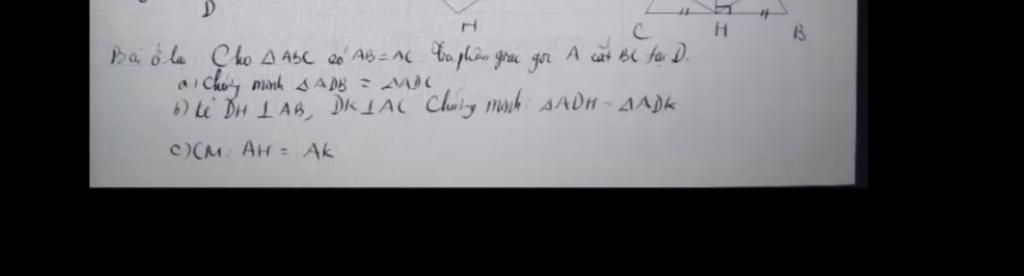 D
H
C H B
Bài ở lại Cho △ABC có AB=AC Tia phân giác góc A cắt BC tại D.
a) Chứng minh △ADB = △ADC
b) kẻ DH ⊥ AB, DK ⊥ AC Chứng minh △ADH = △ADK
c) CM: AH = AK